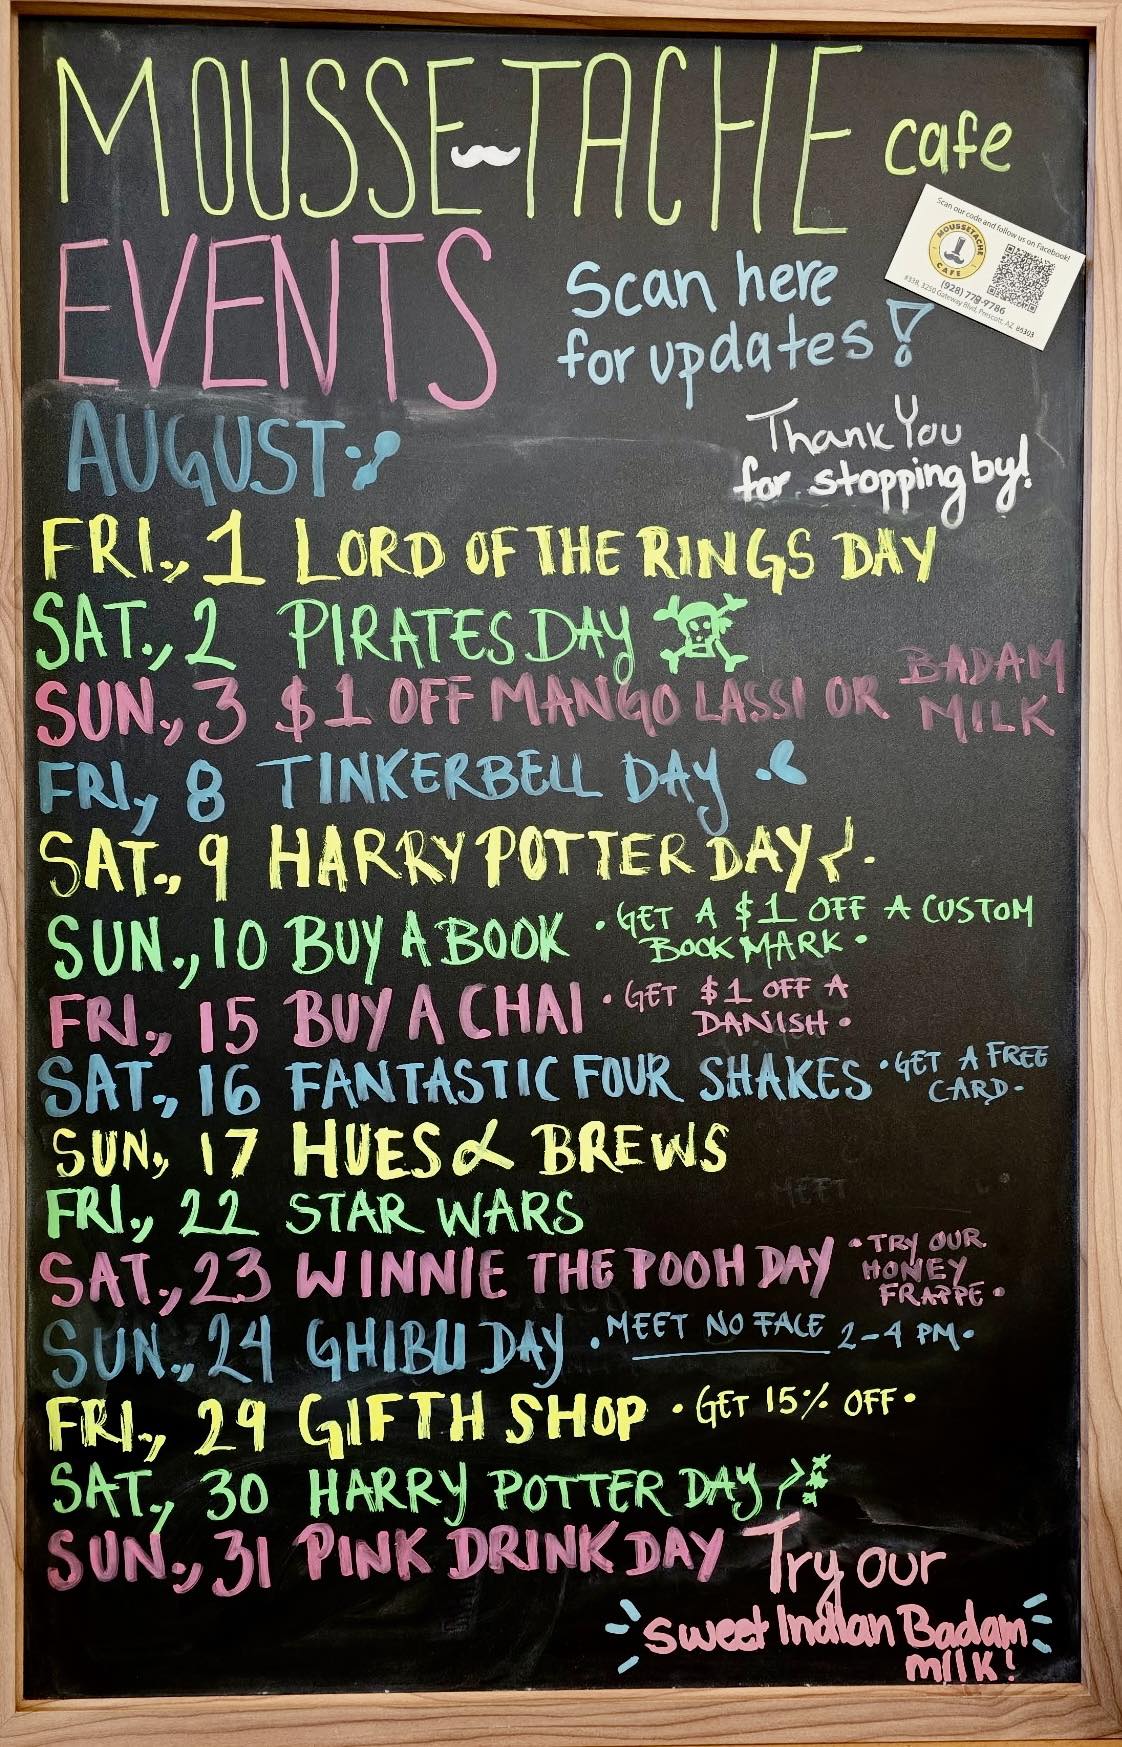 MOUSSE-TACHE cafe
Scan our code and follow us on Facebook!
MOUSSETACHE
CAFE
(928) 778-9786
#338, 3250 Gateway Blvd, Prescott, AZ 86303
EVENTS
Scan here
for updates!
AUGUST:
Thank You
for stopping by!
FRI., 1 LORD OF THE RINGS DAY
SAT., 2 PIRATES DAY
SUN., 3 $1 OFF MANGO LASSI OR BADAM
MILK
FRI, 8 TINKERBELL DAY
SAT., 9 HARRY POTTER DAY
SUN., 10 BUY A BOOK • GET A $1 OFF A CUSTOM
BOOKMARK •
FRI., 15 BUY A CHAI • GET $1 OFF A
DANISH •
SAT., 16 FANTASTIC FOUR SHAKES • GET A FREE
CARD •
SUN., 17 HUES & BREWS
FRI., 22 STAR WARS
SAT., 23 WINNIE THE POOH DAY • TRY OUR
HONEY
FRAPPE •
SUN., 24 GHIBLI DAY • MEET NO FACE 2-4 PM •
FRI., 29 GIFTH SHOP • GET 15% OFF •
SAT., 30 HARRY POTTER DAY
SUN., 31 PINK DRINK DAY
Try our
sweet Indian Badam
milk!